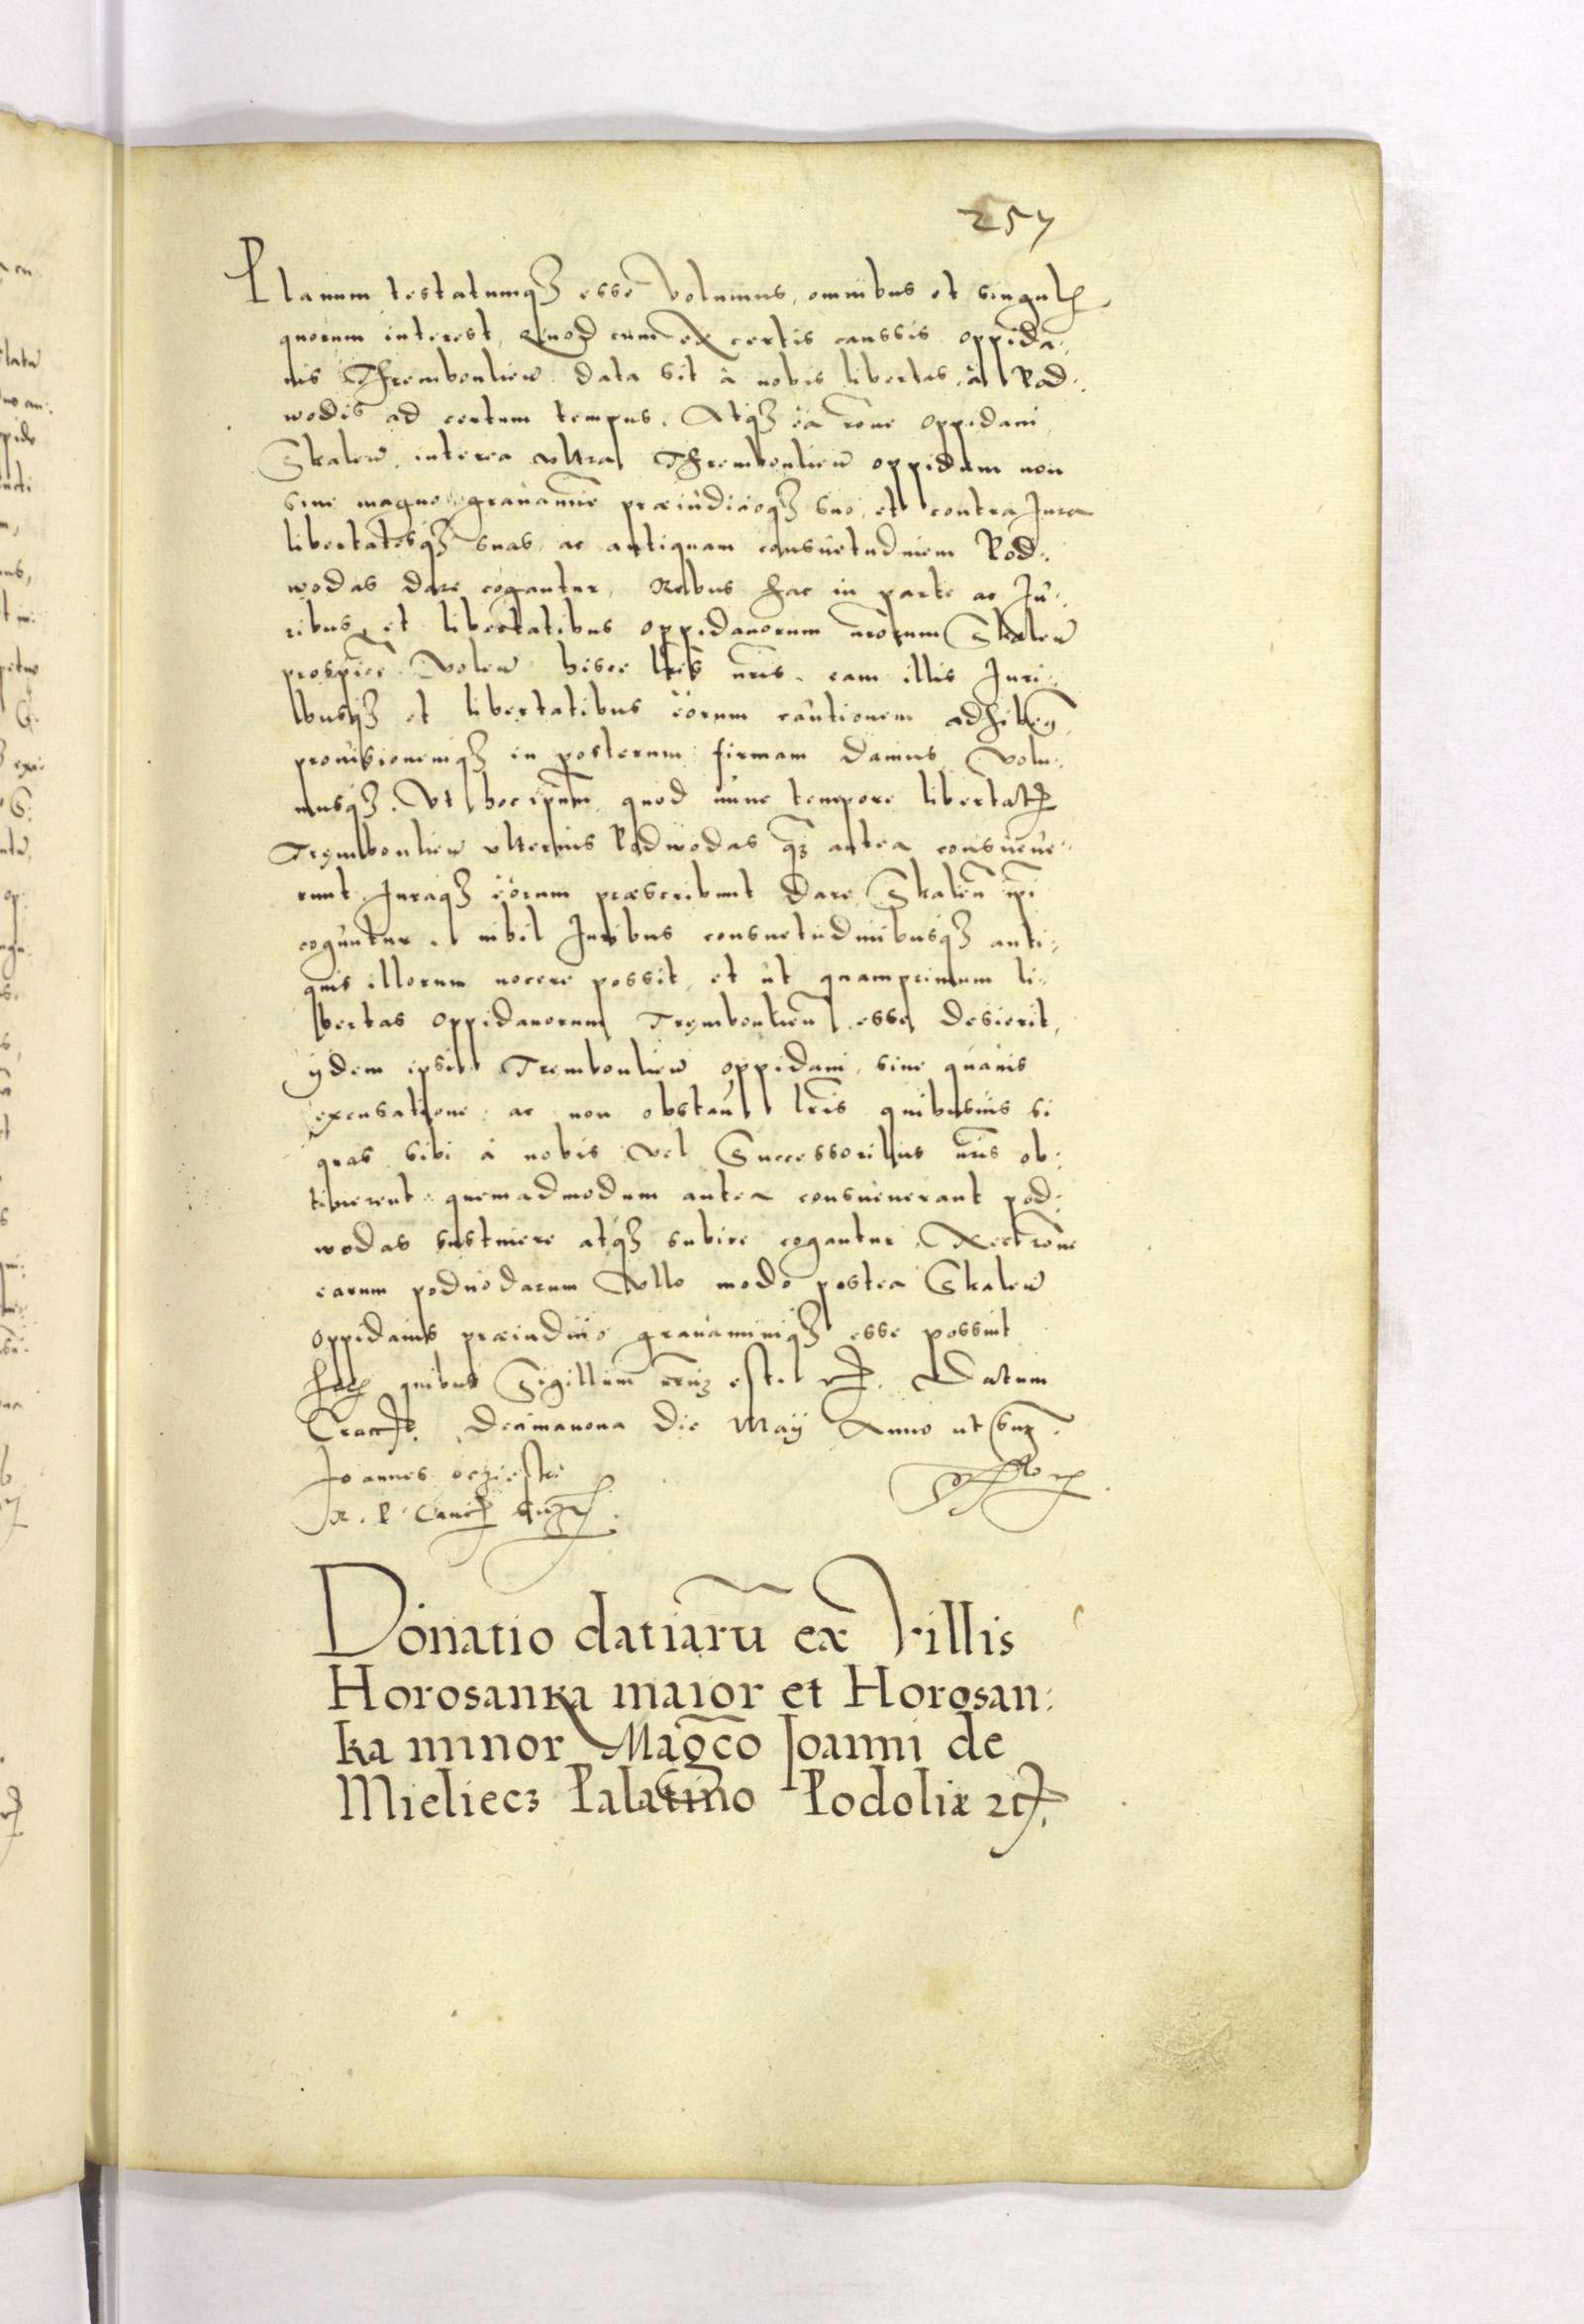 257
Planum testatumqꝫ esse volumus, omnibus et singul
quorum interest, Quod cum ex certis caussis oppida:
nis Thrembowlien̄ data sit à nobis libertas à Pod:
wodis ad certum tempus. Atqꝫ ea rōne oppidani
Skalen̄ interea ultra Thrembowlien̄ oppidum non
sine magno gravamīe præiudicioqꝫ suo, et contra Jura
libertatesqꝫ suas, ac antiquam consuetudinem Pod:
wodas dare cogantur, Rebus hac in parte ac Ju:
ribus et libertatibus oppidanorum nr̄orum Skalen̄
prospicere volen̄ hisce lr̄is nr̄is. eam illis Juri:
busqꝫ et libertatibus eorum cautionem adhiben̄
provisionemqꝫ in posterum firmam damus, volu:
musqꝫ. Ut hoc ipsum quod nunc tempore libertat
Trembowlien̄ ulterius Podwodas qꝫ antea consueve:
runt Juraqꝫ eorum præscribunt dare Skalen̄ ip̄i
coguntur et nihil Juribus consuetudinibusqꝫ anti:
quis illorum nocere possit, et ut quamprimum li:
bertas oppidanorum Trembowlien̄ esse desierit,
ijdem ipsi Trembowlien̄ oppidani sine quavis
excusatione, ac non obstant lr̄is quibusvis si
quas sibi à nobis vel Successoribus nr̄is ob:
tinerent. quemadmodum antea consueverant pod:
wodas sustinere atqꝫ subire cogantur. Nec rōne
earum podwodarum ullo modo postea Skalen̄
oppidanis præiudicio gravaminiqꝫ esse possint
Har quibus Sigillum nr̄m est etc. Datum
Crac. Decimanona die Maij Anno ut sup̄.
Joannes oczieski
R. P. Canc sup̄
Donatio datiarū ex Villis
Horosanka maior et Horosan:
ka minor Magc̄o Joanni de
Mieliecz Palatino Podoliæ etc.